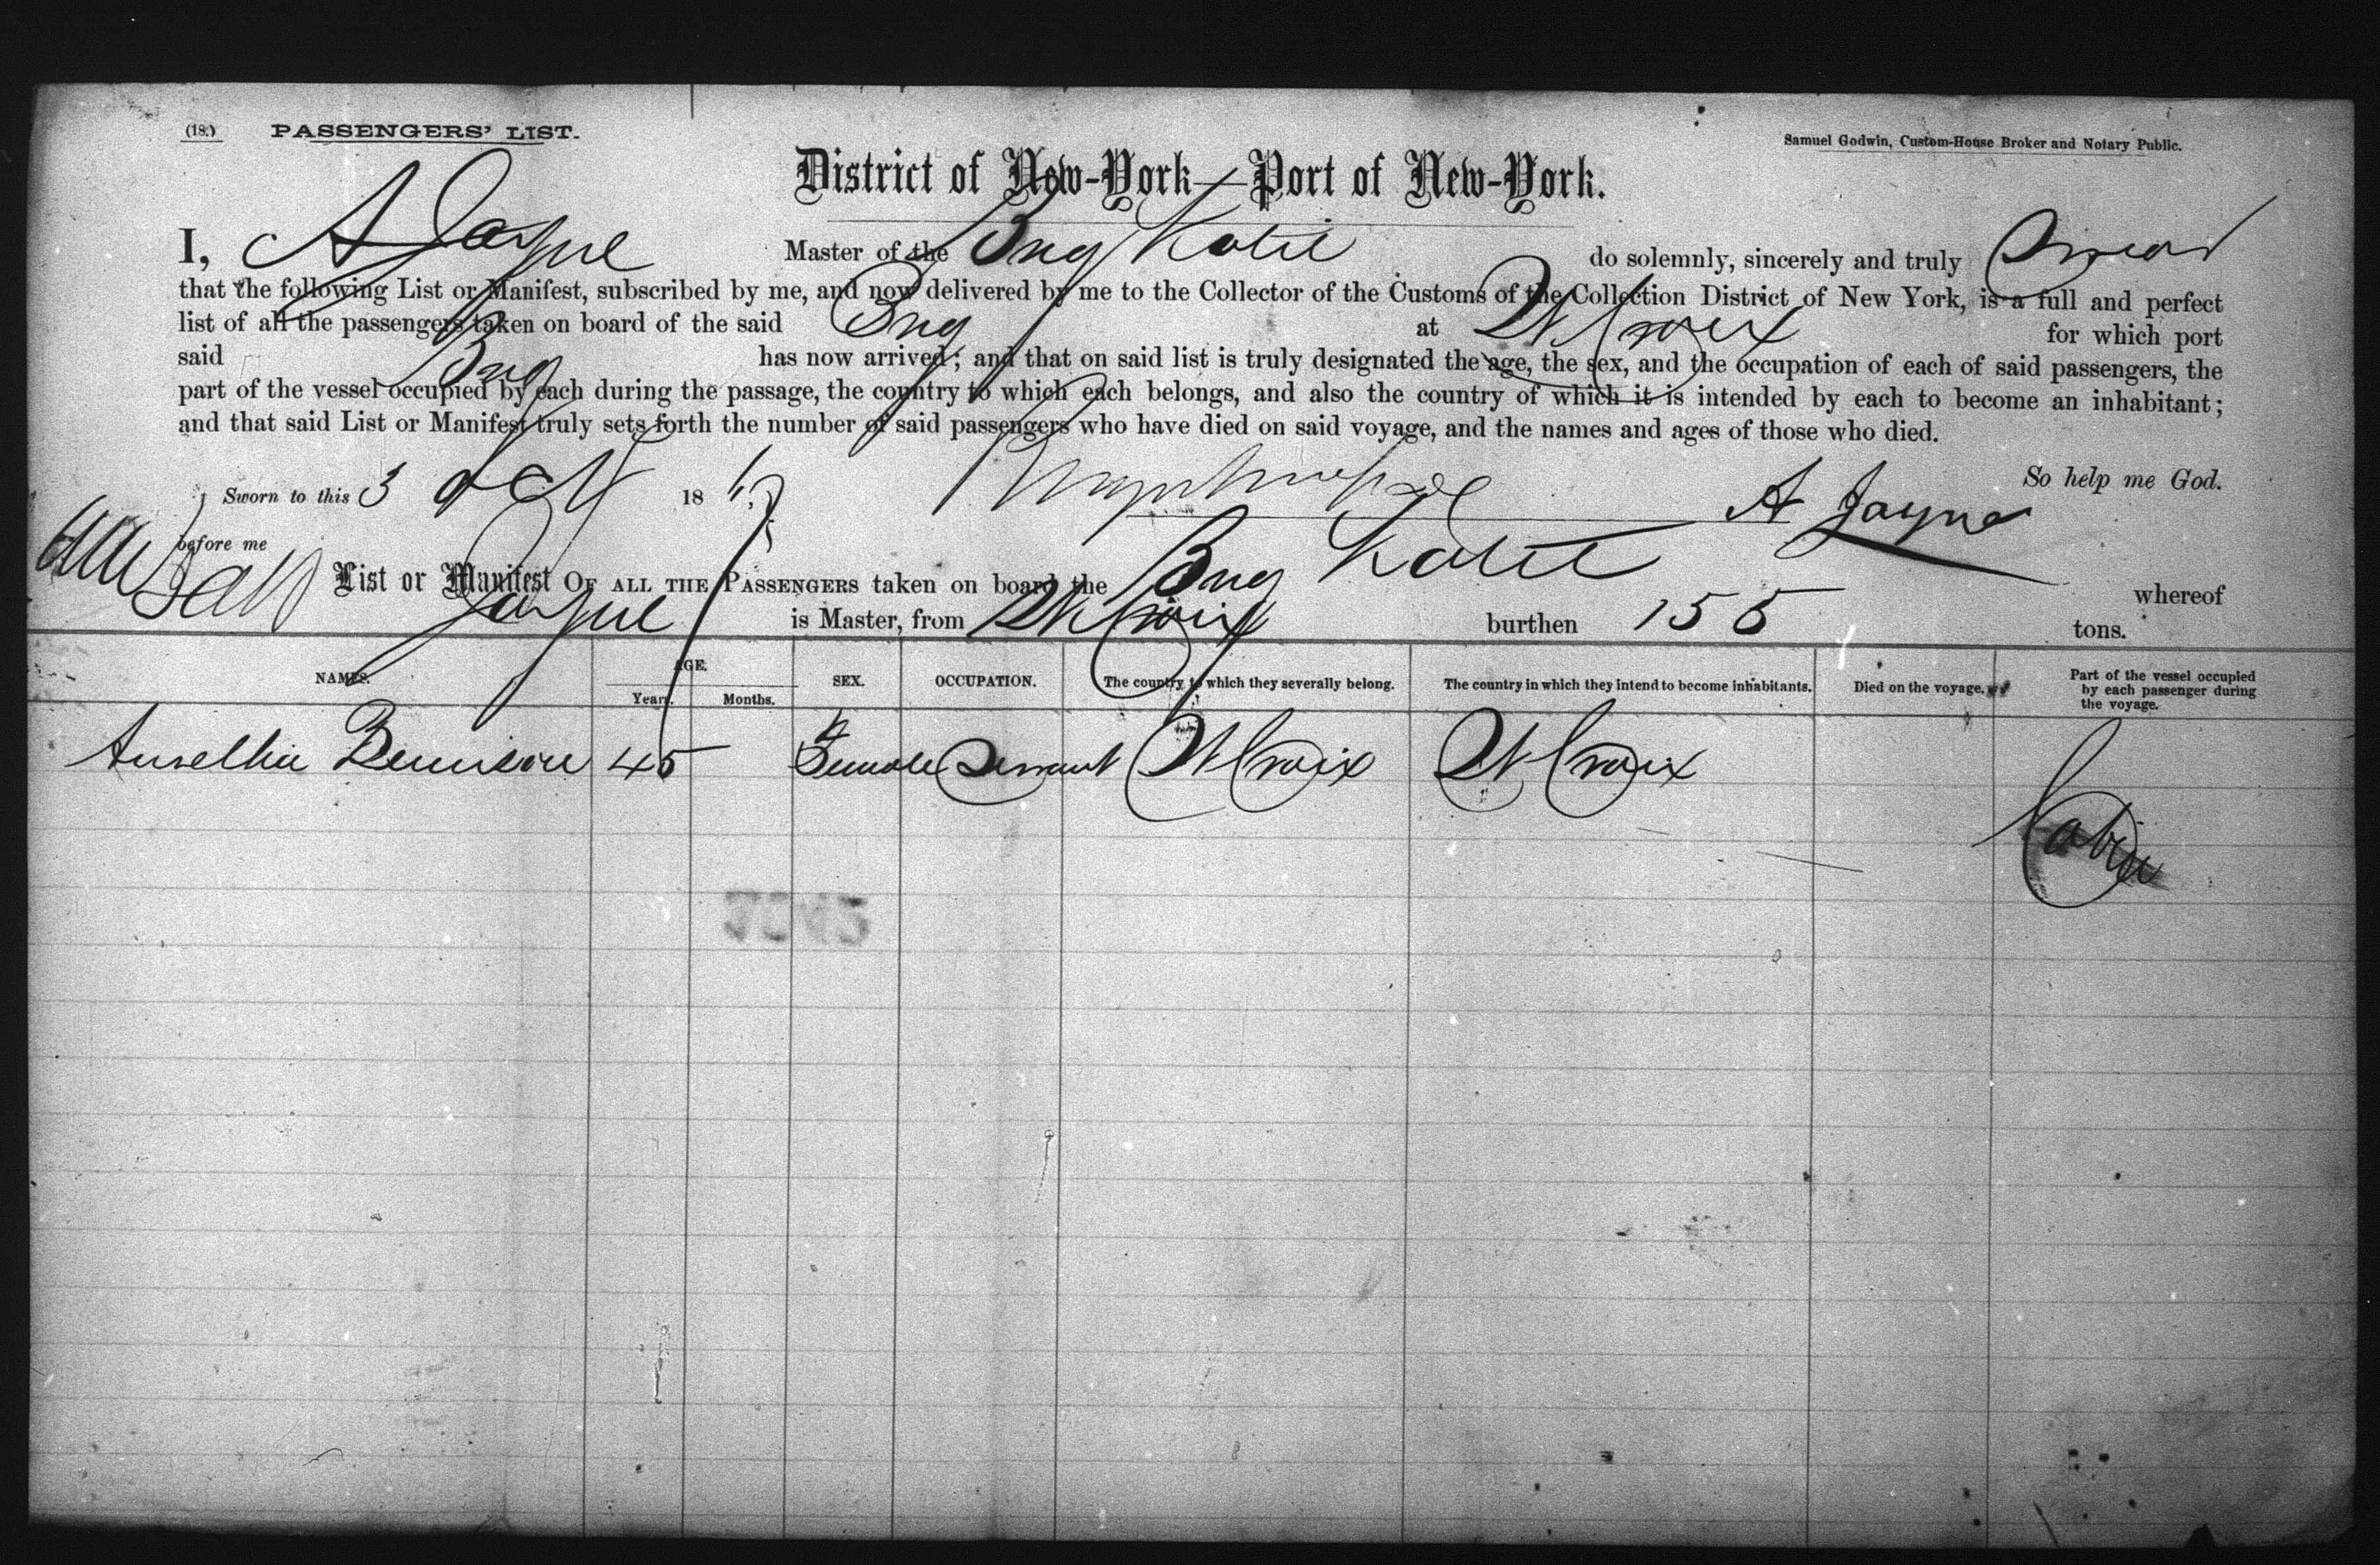 (18.) PASSENGERS' LIST.
Samuel Godwin, Custom-House Broker and Notary Public.
District of New-York—Port of New-York.
I, A Jayne Master of the Brig Katie do solemnly, sincerely and truly Swear
that the following List or Manifest, subscribed by me, and now delivered by me to the Collector of the Customs of the Collection District of New York, is a full and perfect
list of all the passengers taken on board of the said Brig at St Croix for which port
said Brig has now arrived; and that on said list is truly designated the age, the sex, and the occupation of each of said passengers, the
part of the vessel occupied by each during the passage, the country to which each belongs, and also the country of which it is intended by each to become an inhabitant;
and that said List or Manifest truly sets forth the number of said passengers who have died on said voyage, and the names and ages of those who died.
So help me God.
Sworn to this 3 Oct 186
A Jayne
before me
List or Manifest OF ALL THE PASSENGERS taken on board the Brig Katie whereof
Jayne is Master, from St Croix burthen 155 tons.
NAMES. AGE. Years. Months. SEX. OCCUPATION. The country to which they severally belong. The country in which they intend to become inhabitants. Died on the voyage. Part of the vessel occupied by each passenger during the voyage.
45 Female Servant St Croix St Croix Cabin